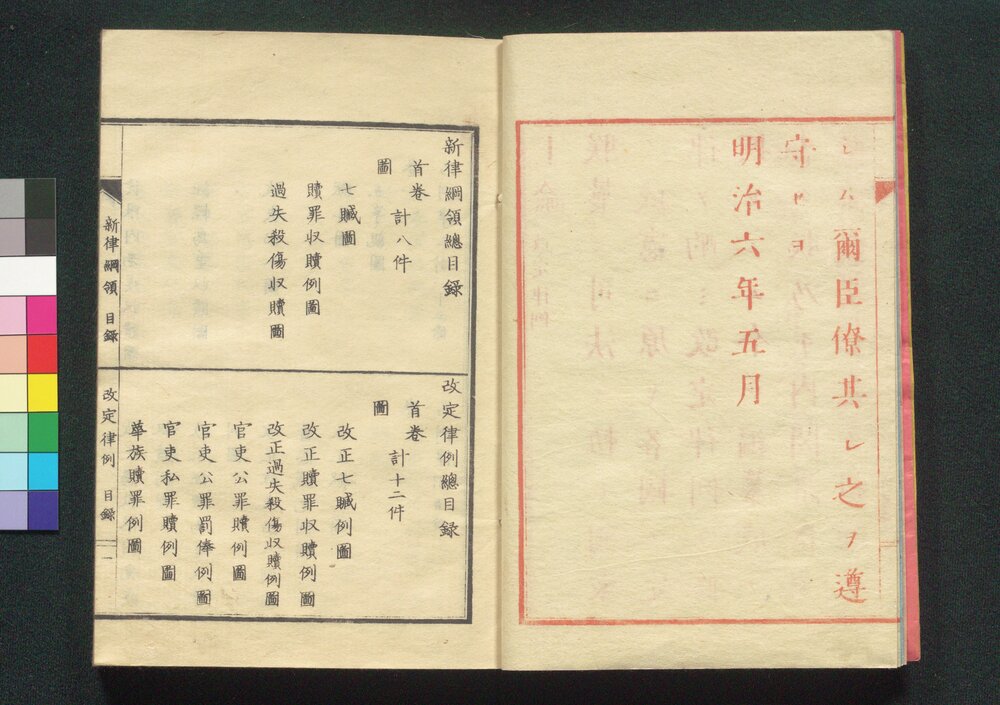 シム爾臣僚其レ之ヲ遵
守セヨ
明治六年五月
新律綱領總目録
首卷 計八件
圖
七贓圖
贖罪収贖例圖
過失殺傷収贖圖
改定律例總目録
首卷 計十二件
圖
改正七贓例圖
改正贖罪収贖例圖
改正過失殺傷収贖例圖
官吏公罪贖例圖
官吏公罪罰俸例圖
官吏私罪贖例圖
華族贖罪例圖
新律綱領 目録
改定律例 目録 一